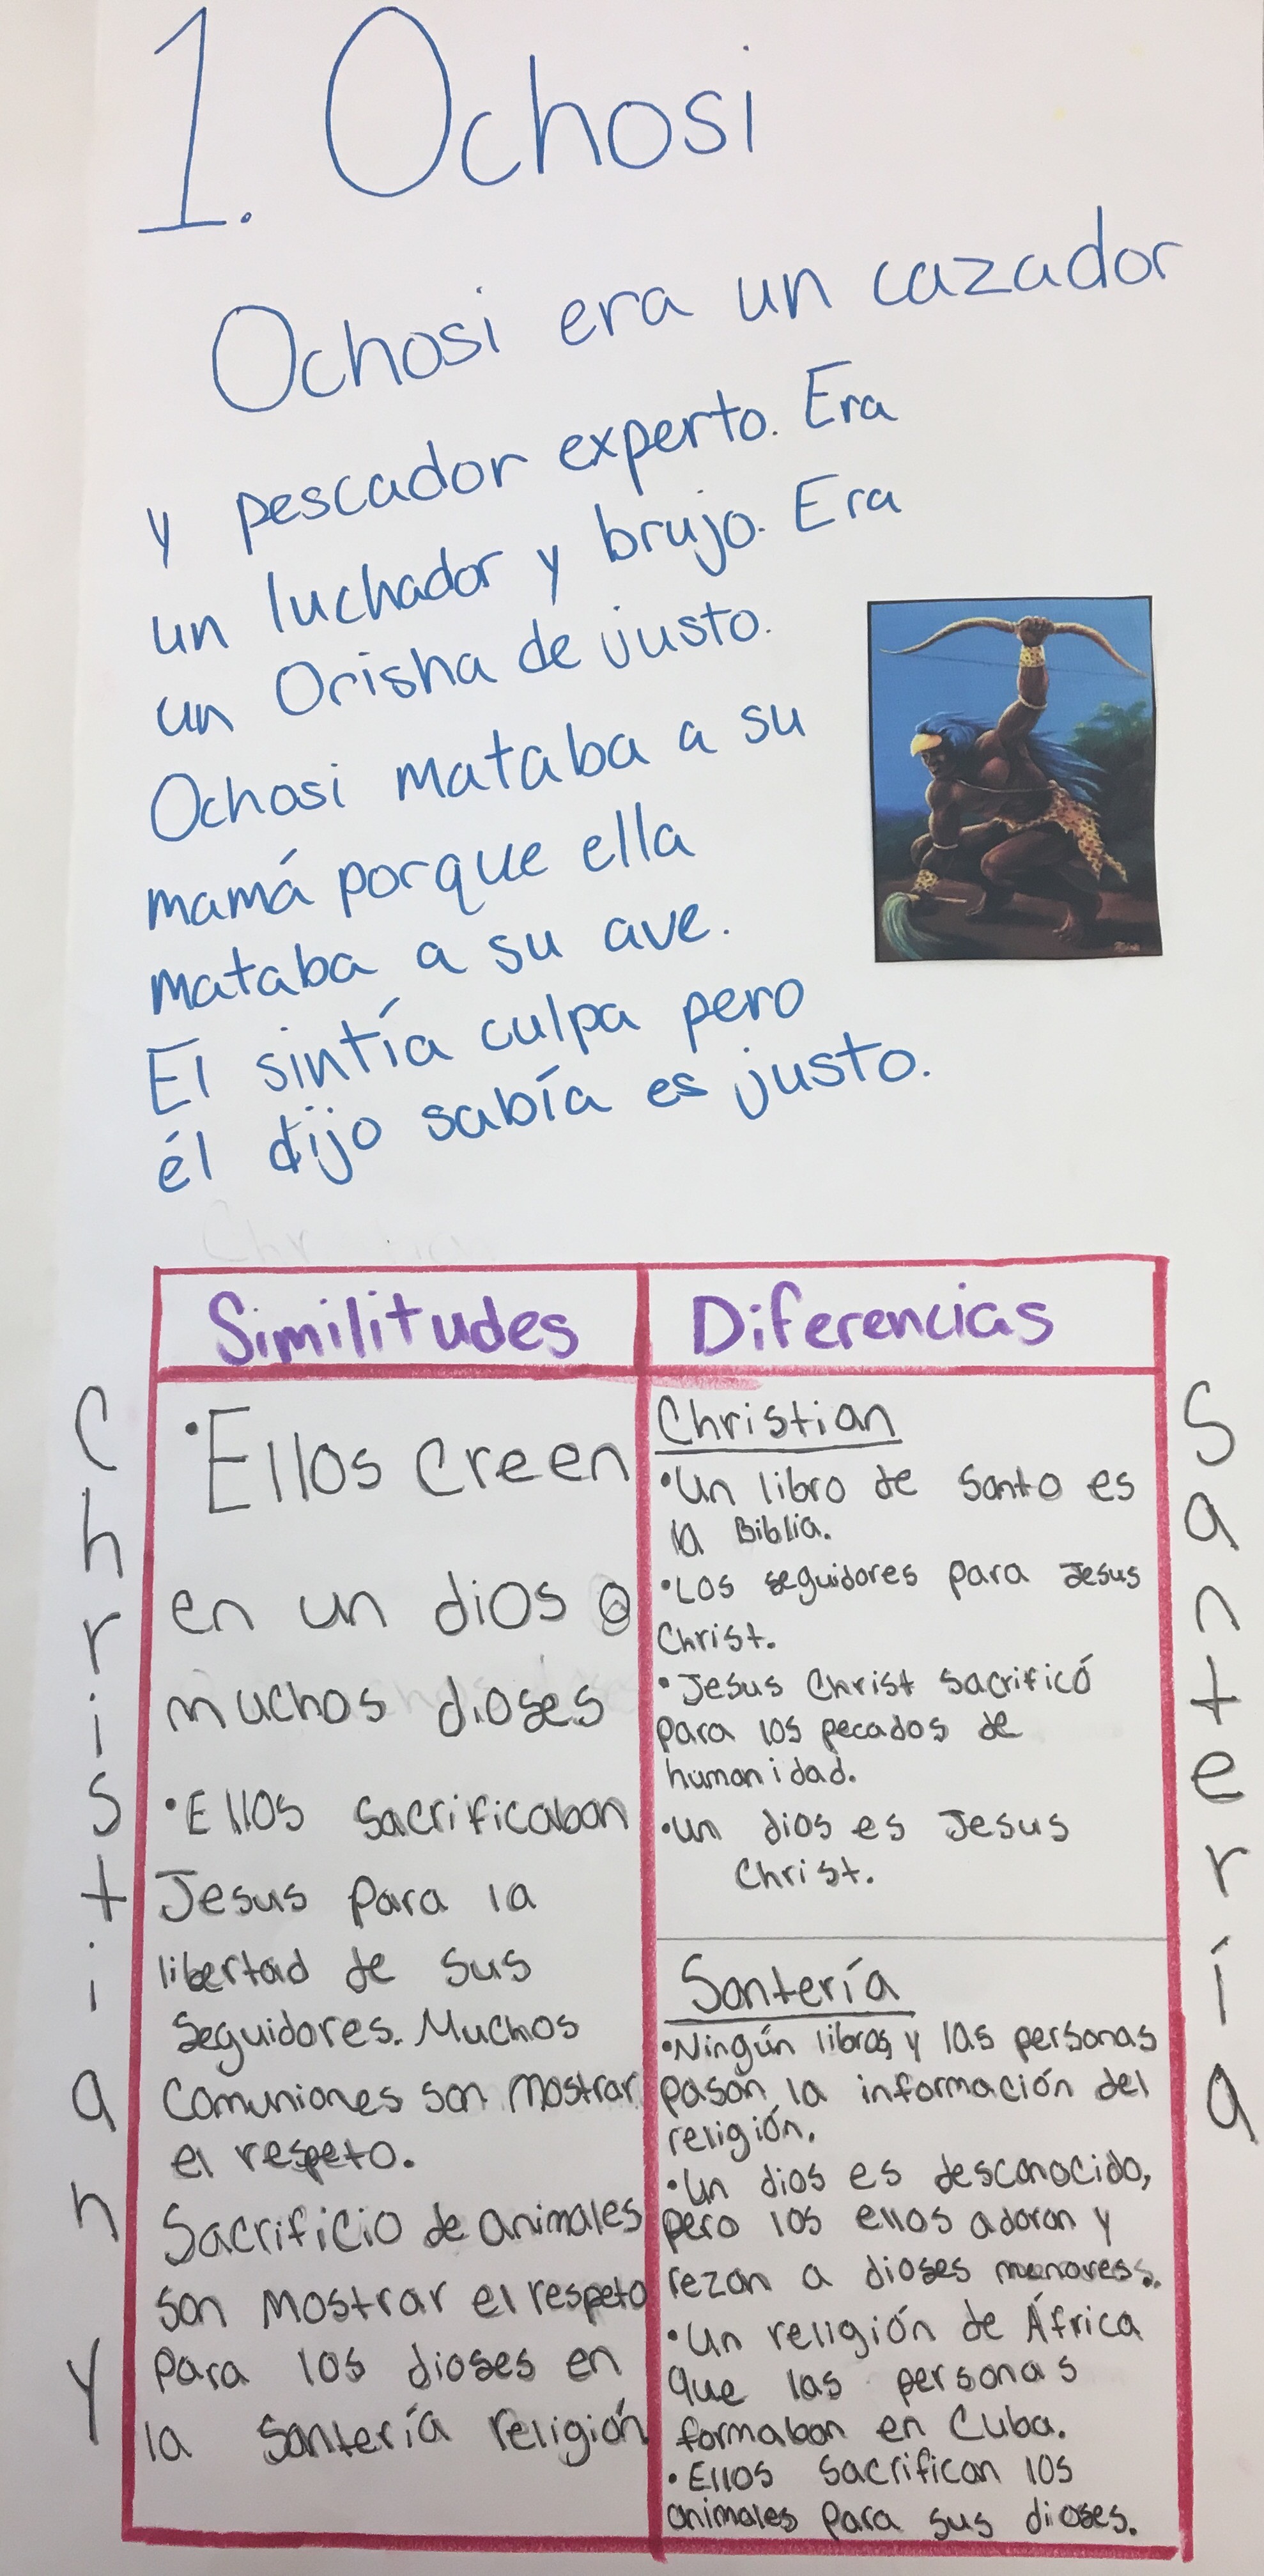 1. Ochosi
Ochosi era un cazador
y pescador experto. Era
un luchador y brujo. Era
un Orisha de justo.
Ochosi mataba a su
mamá porque ella
mataba a su ave.
El sintía culpa pero
él dijo sabía es justo.
Similitudes
Diferencias
Christian y
• Ellos creen
en un dios o
muchos dioses
• Ellos sacrificaban
Jesus para la
libertad de sus
seguidores. Muchos
comuniones son mostrar
el respeto.
Sacrificio de animales
son mostrar el respeto
para los dioses en
la santería religión
Christian
• Un libro de santo es
la Biblia.
• Los seguidores para Jesus
Christ.
• Jesus Christ sacrificó
para los pecados de
humanidad.
• un dios es Jesus
Christ.
Santería
• Ningún libros y las personas
pasan la información del
religión.
• Un dios es desconocido,
pero los ellos adoran y
rezan a dioses menores.
• Un religión de África
que las personas
formaban en Cuba.
• Ellos sacrifican los
animales para sus dioses.
Santería